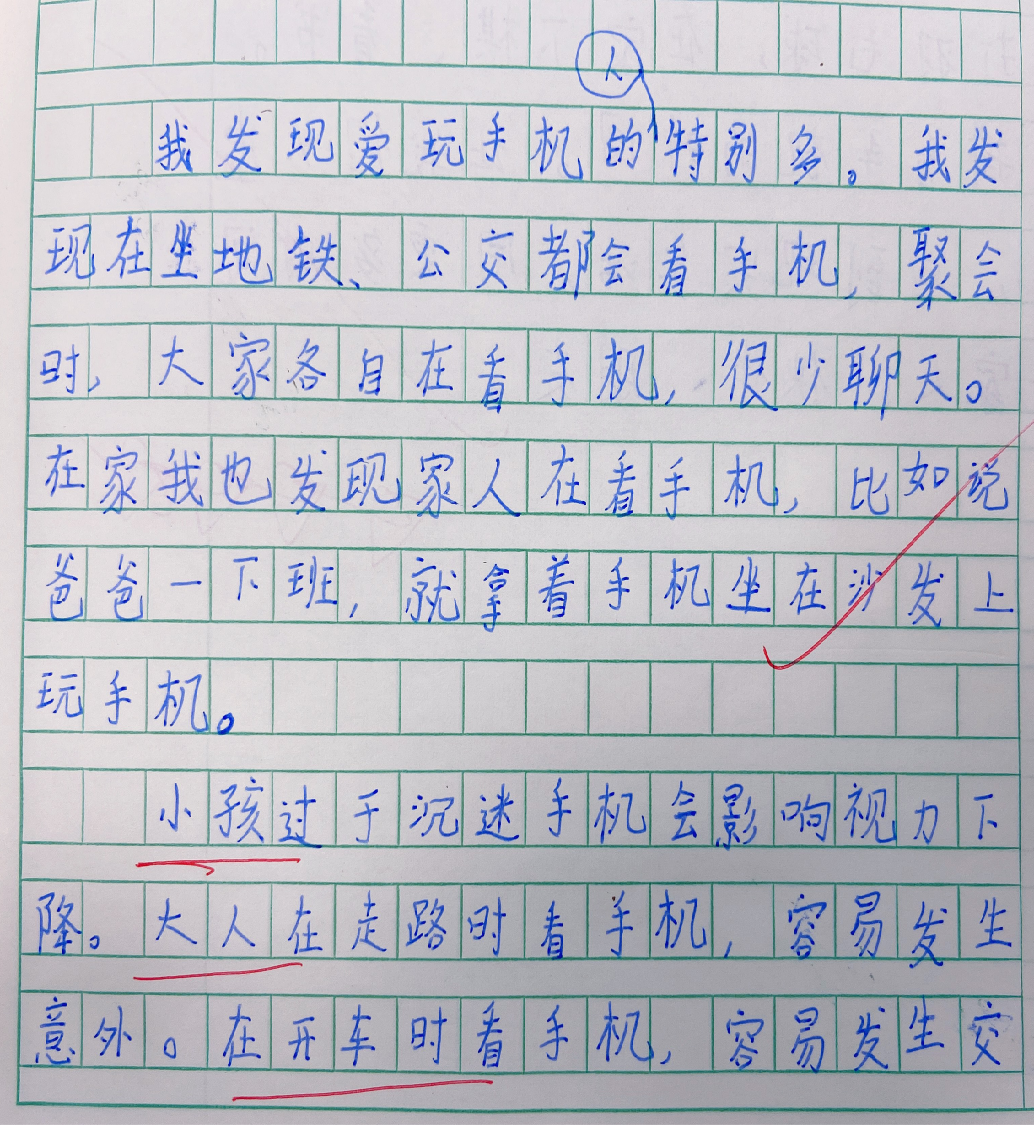 人
我发现爱玩手机的特别多。我发
现在坐地铁、公交都会看手机,聚会
时,大家各自在看手机,很少聊天。
在家我也发现家人在看手机,比如说
爸爸一下班,就拿着手机坐在沙发上
玩手机。
小孩过于沉迷手机会影响视力下
降。大人在走路时看手机,容易发生
意外。在开车时看手机,容易发生交